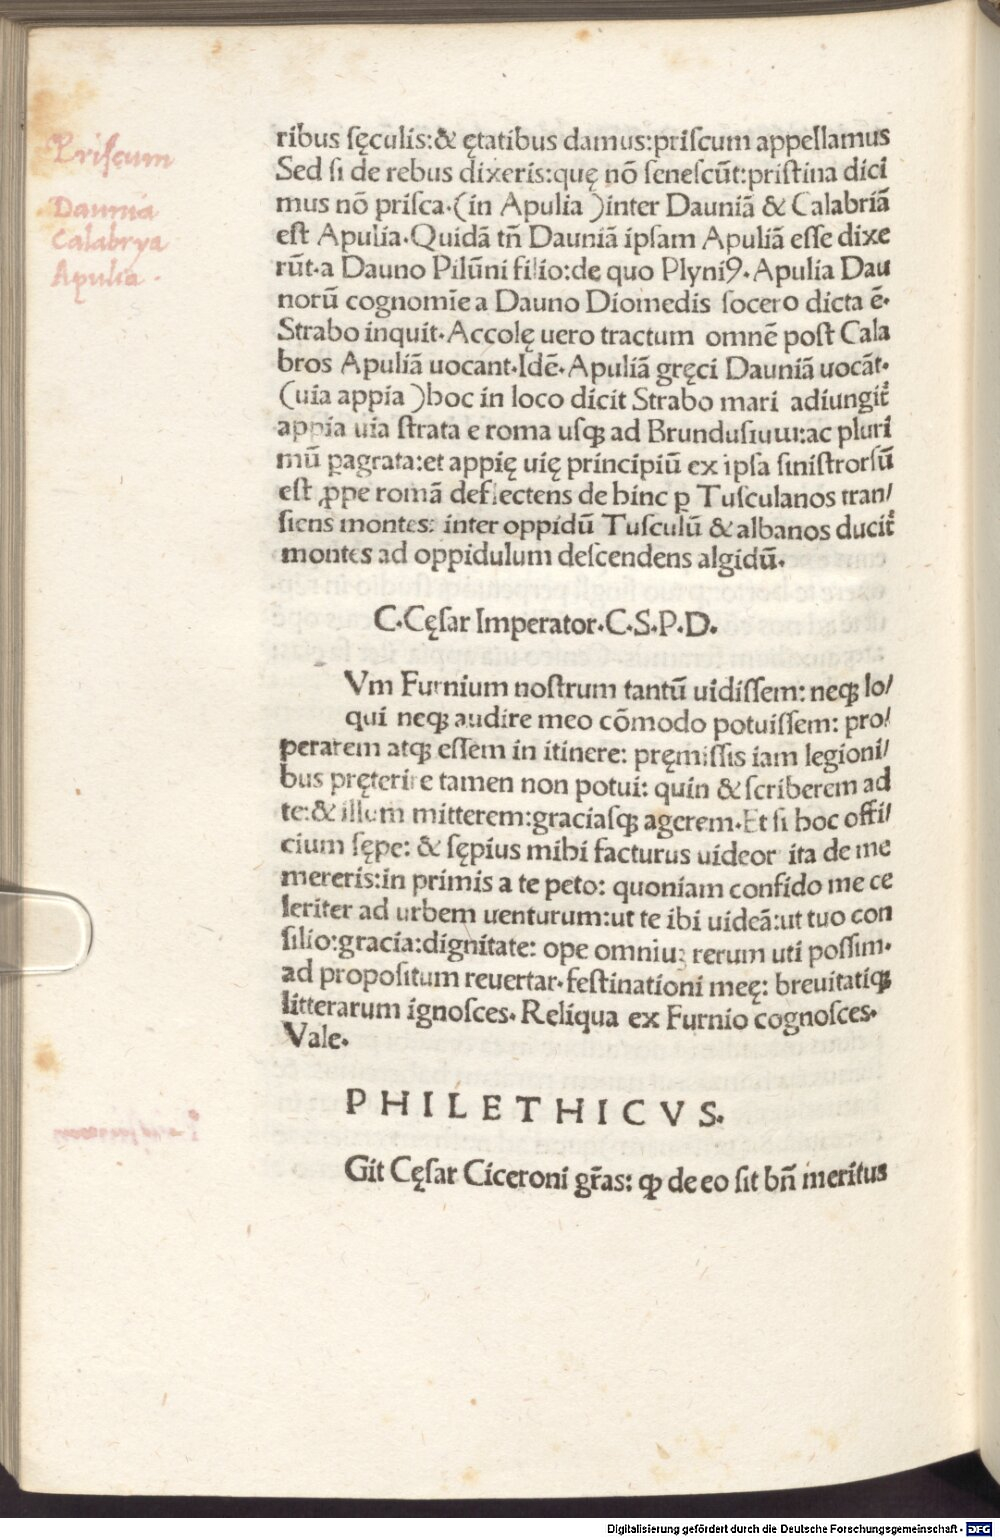 Priscum
Daunia
Calabrya
Apulia.
ribus sęculis:& ętatibus damus:priscum appellamus
Sed si de rebus dixeris:quę nō senescūt:pristina dici
mus nō prisca.(in Apulia )inter Dauniā & Calabriā
est Apulia.Quidā tñ Dauniā ipsam Apuliā esse dixe
rūt.a Dauno Pilūni filio:de quo Plyniꝰ.Apulia Dau
norū cognomīe a Dauno Diomedis socero dicta ē.
Strabo inquit.Accolę uero tractum omnē post Cala
bros Apuliā uocant.Idē.Apuliā gręci Dauniā uocāt.
(uia appia )hoc in loco dicit Strabo mari adiungit᷑
appia uia strata e roma usqꝫ ad Brundusium:ac pluri
mū ꝑagrata:et appię uię principiū ex ipsa sinistrorsū
est ꝓpe romā deflectens de hinc ꝑ Tusculanos tran/
siens montes: inter oppidū Tusculū & albanos ducit᷑
montes ad oppidulum descendens algidū.
C.Cęsar Imperator.C.S.P.D.
Vm Furnium nostrum tantū uidissem: neqꝫ lo/
qui neqꝫ audire meo cōmodo potuissem: pro/
perarem atqꝫ essem in itinere: pręmissis iam legioni/
bus pręterire tamen non potui: quin & scriberem ad
te:& illum mitterem:graciasqꝫ agerem.Et si hoc offi/
cium sępe: & sępius mihi facturus uideor ita de me
mereris:in primis a te peto: quoniam confido me ce
leriter ad urbem uenturum:ut te ibi uideā:ut tuo con
silio:gracia:dignitate: ope omniuꝫ rerum uti possim.
ad propositum reuertar.festinationi meę: breuitatiqꝫ
litterarum ignosces. Reliqua ex Furnio cognosces.
Vale.
PHILETHICVS.
Git Cęsar Ciceroni gr̃as: ꝙ de eo sit bñ meritus
Digitalisierung gefördert durch die Deutsche Forschungsgemeinschaft - DFG